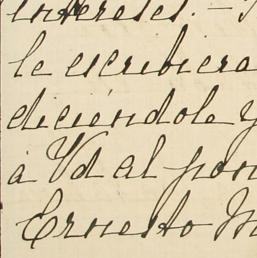 intereses. –
le escribiera
diciéndole y
á Vd al pon
Ernesto M